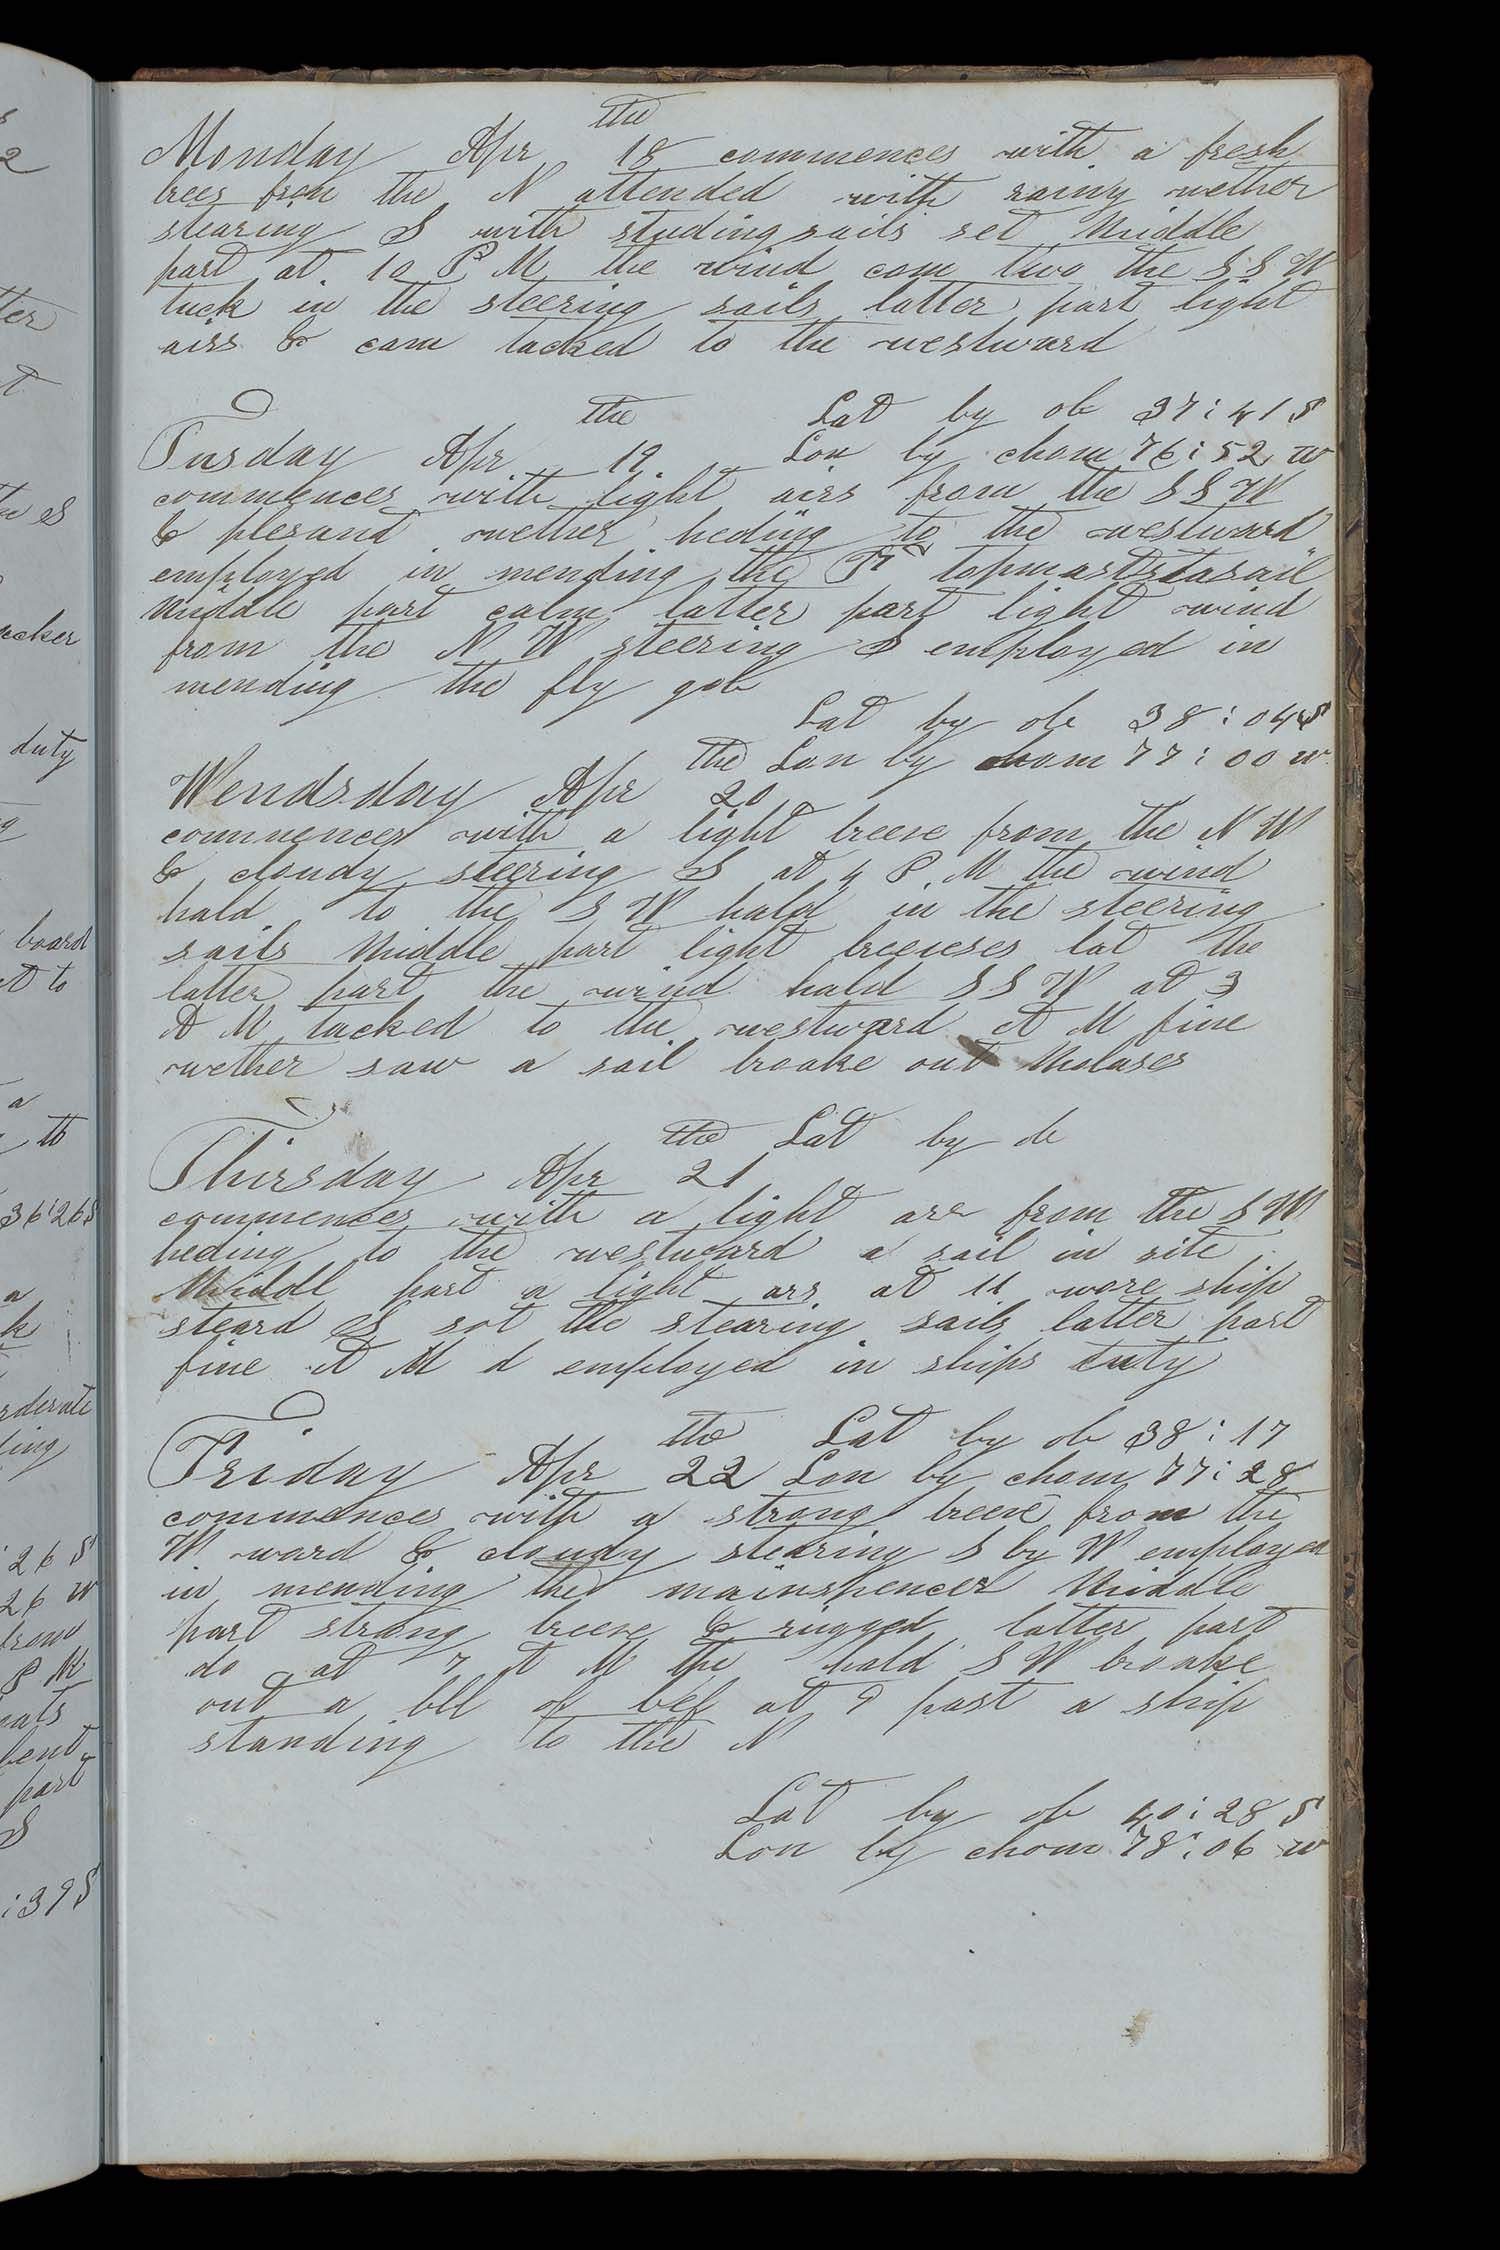 the
Monday Apr 18 commences with a fresh
brees from the N attended with rainy wether
stearing S with studing sails set Middle
part at 10 P M the wind com two the S S W
tuck in the steering sails latter part light
airs & cam tacked to the westward
the Lat by ob 37:41 S
Tusday Apr 19 Lon by chom 76:52 W
commences with light airs from the S S W
& plesant wether heding to the westward
employed in mending the topmaststasail
Middle part calm latter part light wind
from the N W steering S employed in
mending the fly gob
Lat by ob 38:04 S
the Lon by chom 77:00 W
Wendsday Apr 20
commences with a light breese from the N W
& cloudy steering S at 4 P M the wind
hald to the S W hald in the steering
sails Middle part light breeses lat the
latter part the wind hald S S W at 3
A M tacked to the westward A M fine
wether saw a sail broake out Molases
the Lat by ob
Thirsday Apr 21
commences with a light are from the S W
heding to the westward a sail in site
Middl part a light ars at 11 wore ship
steard S sot the stearing sails latter part
fine A M d employed in ships duty
the Lat by ob 38:17
Friday Apr 22 Lon by chom 77:28
commences with a strong breese from the
W ward & cloudy stearing S by W employed
in mending the mainspencer Middle
part strong breese & rugged latter part
do at 7 A M the hald S W broake
out a bbl of bef at 9 past a ship
standing to the N
Lat by ob 40:28 S
Lon by chom 78:06 W
ter
duty
board
to
a
to
36:26 S
a
26 S
26 W
from
P M
part
S
:39 S